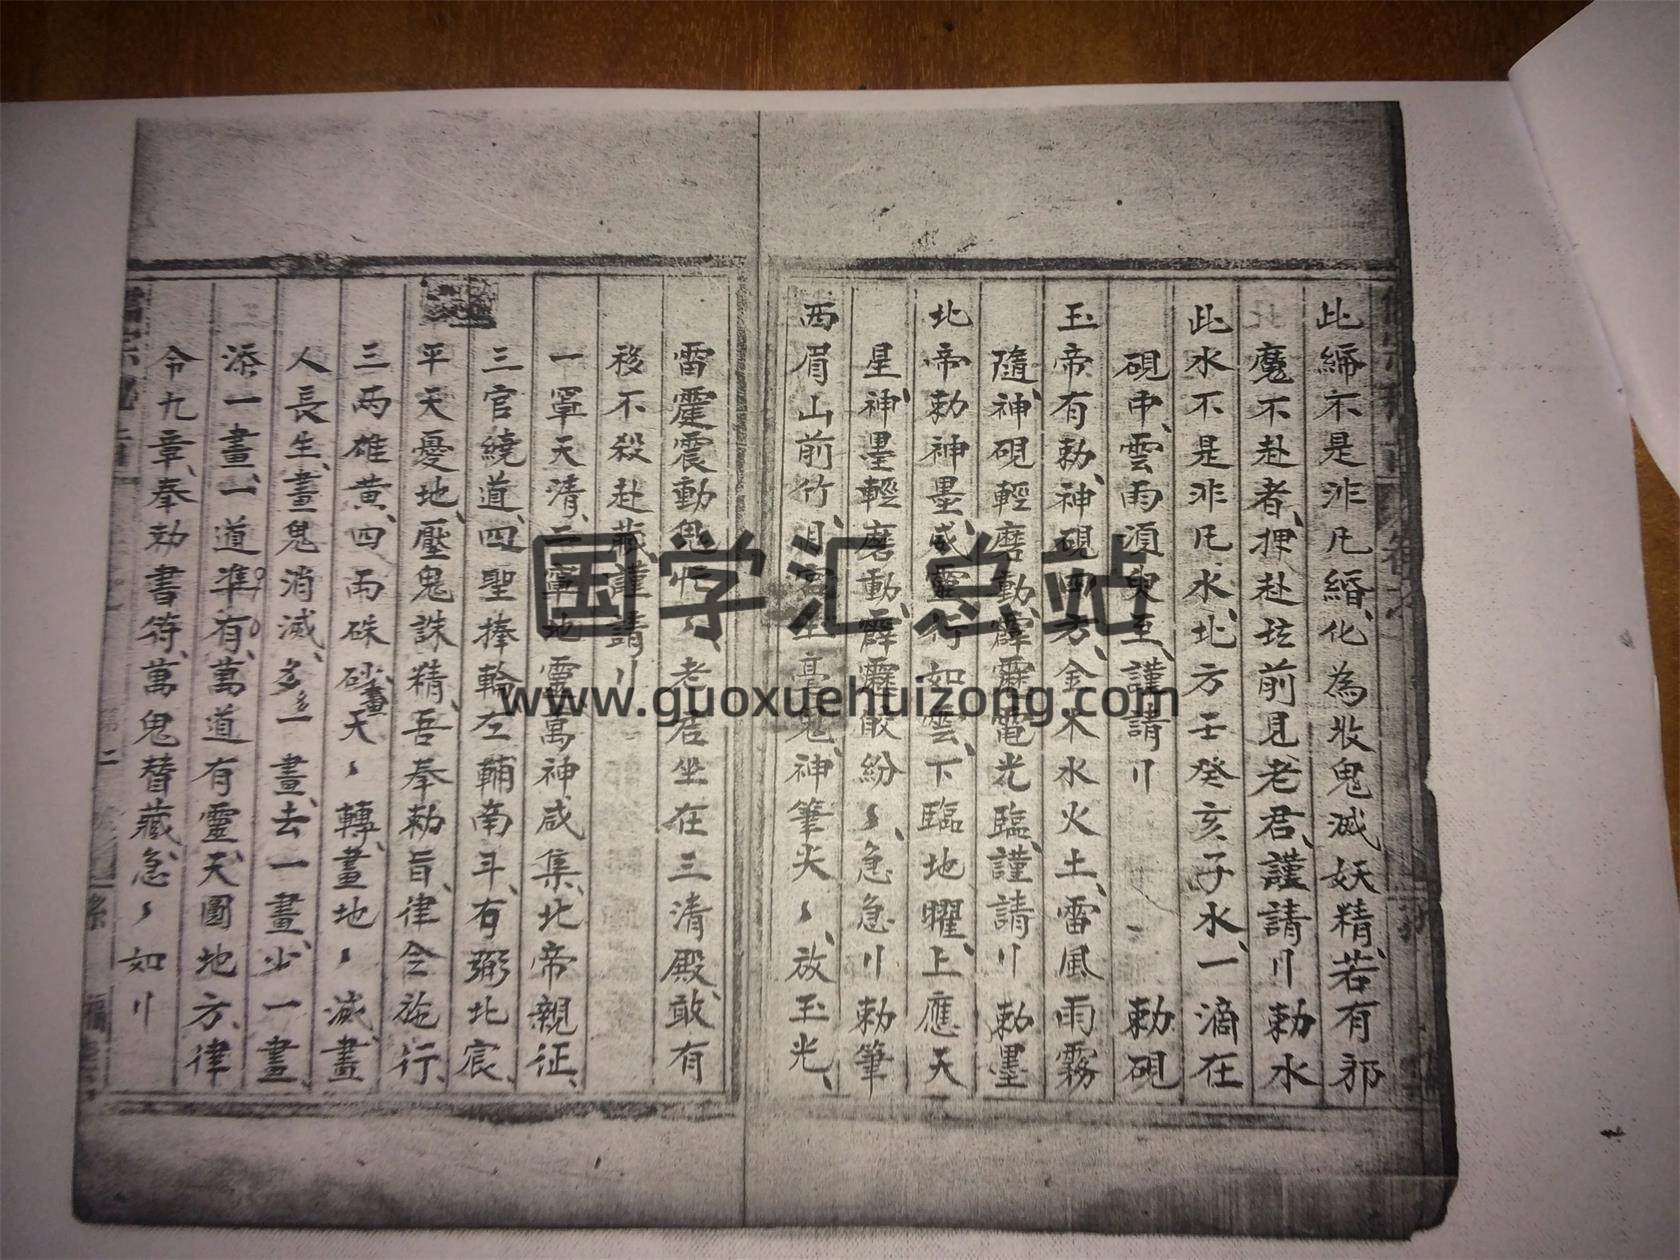 此締不是泋凡緍、化為收鬼滅妖精、若有邪
魔不赴者、押赴坛前見老君、謹請〢 勅水
此水不是泋凡水、北方壬癸亥子水、一滴在
硯中、雲雨須臾至、謹請〢 勅硯
玉帝有勅、神硯四方、金木水火土、雷風雨霧
隨、神硯輕磨動、霹靂電光臨、謹請〢 勅墨
北帝勅神墨、威靈行如雲、下臨地曜、上應天
星、神墨輕磨動、霹靂散紛〻、急急〢 勅筆
西眉山前竹、月宮 毫鬼神、筆尖〻放玉光、
雷霆震動鬼 、老君坐在三清殿、敢有
移不殺赴藏、謹請〢
一罩天清、二罩地靈、萬神咸集、北帝親征、
三官繞道、四聖捧輪、左輔南斗、有弼北宸、
平天憂地、壓鬼誅精、吾奉勅旨、律令施行、
三两雄黃、四两硃砂、畫天〻轉、畫地〻滅、畫
人長生、畫鬼消滅、多〻一畫、去一畫、少一畫、
添一畫、一道準有、萬道有靈、天圓地方、律
令九章、奉勅書符、萬鬼替藏、急〻如〢
国学汇总站
www.guoxuehuizong.com